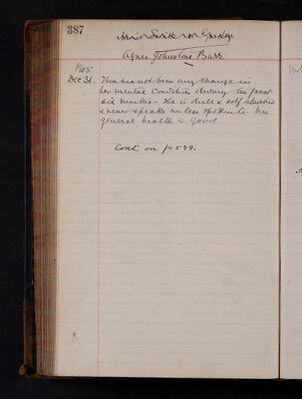 387
Agnes Johnstone Barr
1905
Dec 31. There has not been any change in
her mental condition during the past
six months - She is dull & self absorbed
& never speaks unless spoken to. Her
general health is good.
Cont. on p 599.